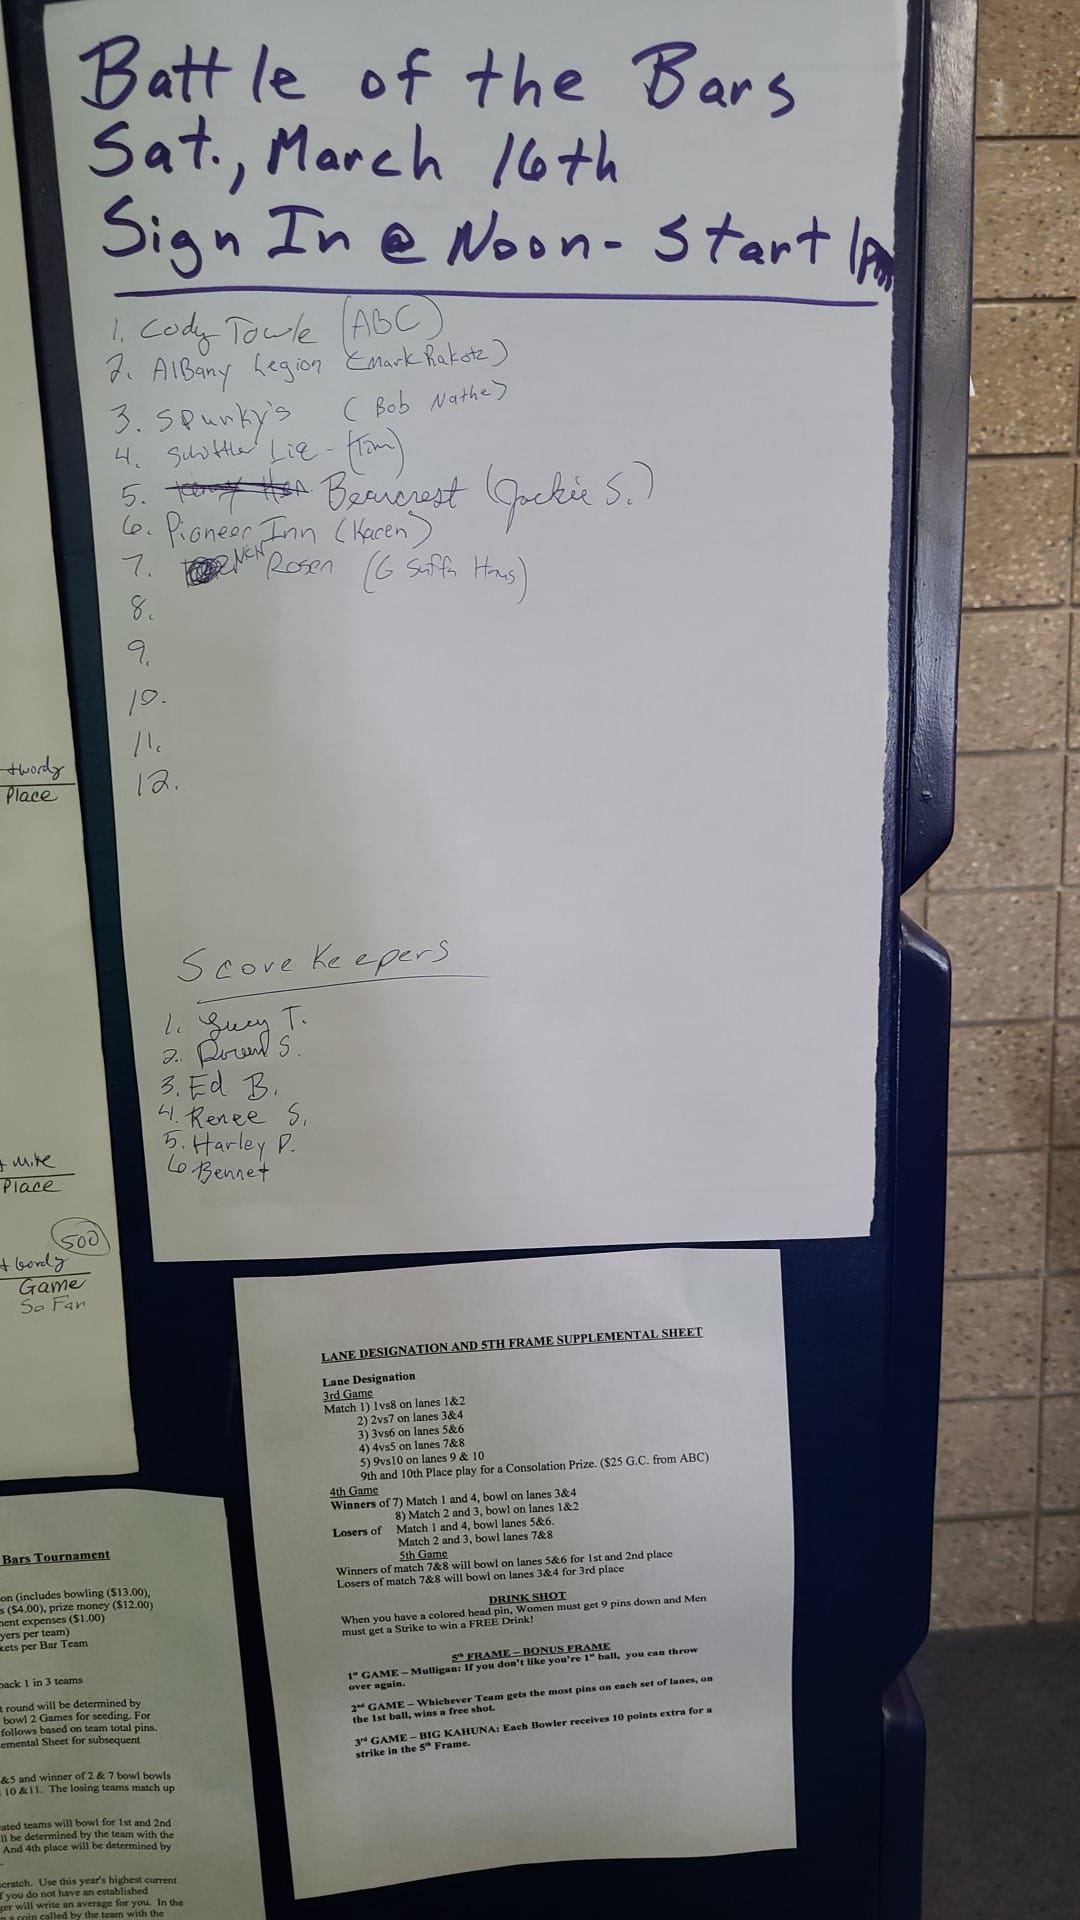 Battle of the Bars
Sat., March 16th
Sign In @ Noon - Start 1pm
1. Cody Towle (ABC)
2. AlBany Legion (Mark Rakotz)
3. Spunky's (Bob Nathe)
4. Liq - (Tim)
5. Bearcrest (Jackie S.)
6. Pioneer Inn (Karen)
7. Rosen (G Suffa Haus)
8.
9.
10.
11.
12.
Score Keepers
1. T.
2. S.
3. Ed B.
4. Renee S.
5. Harley P.
6 Bennet
Place
+ Mike
Place
500
Game
So Far
LANE DESIGNATION AND 5TH FRAME SUPPLEMENTAL SHEET
Lane Designation
3rd Game
Match 1) 1vs8 on lanes 1&2
2) 2vs7 on lanes 3&4
3) 3vs6 on lanes 5&6
4) 4vs5 on lanes 7&8
5) 9vs10 on lanes 9 & 10
9th and 10th Place play for a Consolation Prize. ($25 G.C. from ABC)
4th Game
Winners of 7) Match 1 and 4, bowl on lanes 3&4
8) Match 2 and 3, bowl on lanes 1&2
Losers of Match 1 and 4, bowl lanes 5&6.
Match 2 and 3, bowl lanes 7&8
5th Game
Winners of match 7&8 will bowl on lanes 5&6 for 1st and 2nd place
Losers of match 7&8 will bowl on lanes 3&4 for 3rd place
DRINK SHOT
When you have a colored head pin, Women must get 9 pins down and Men
must get a Strike to win a FREE Drink!
5th FRAME – BONUS FRAME
1st GAME – Mulligan: If you don't like you're 1st ball, you can throw
over again.
2nd GAME – Whichever Team gets the most pins on each set of lanes, on
the 1st ball, wins a free shot.
3rd GAME – BIG KAHUNA: Each Bowler receives 10 points extra for a
strike in the 5th Frame.
Bars Tournament
on (includes bowling ($13.00),
s ($4.00), prize money ($12.00)
ment expenses ($1.00)
yers per team)
kets per Bar Team
back 1 in 3 teams
t round will be determined by
bowl 2 Games for seeding. For
follows based on team total pins.
emental Sheet for subsequent
&5 and winner of 2 & 7 bowl bowls
10 &11. The losing teams match up
ated teams will bowl for 1st and 2nd
ll be determined by the team with the
And 4th place will be determined by
scratch. Use this year's highest current
f you do not have an established
ger will write an average for you. In the
n a coin called by the team with the